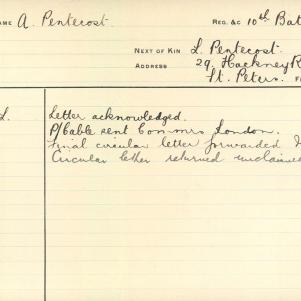 AME A. Pentecost. REG. &C 10th Bat
NEXT OF KIN L. Pentecost.
ADDRESS 29, Hackney R
St. Peters.
L. Letter acknowledged.
P/Cable sent Commrs, London.
Final circular letter forwarded
Circular letter returned unclaimed